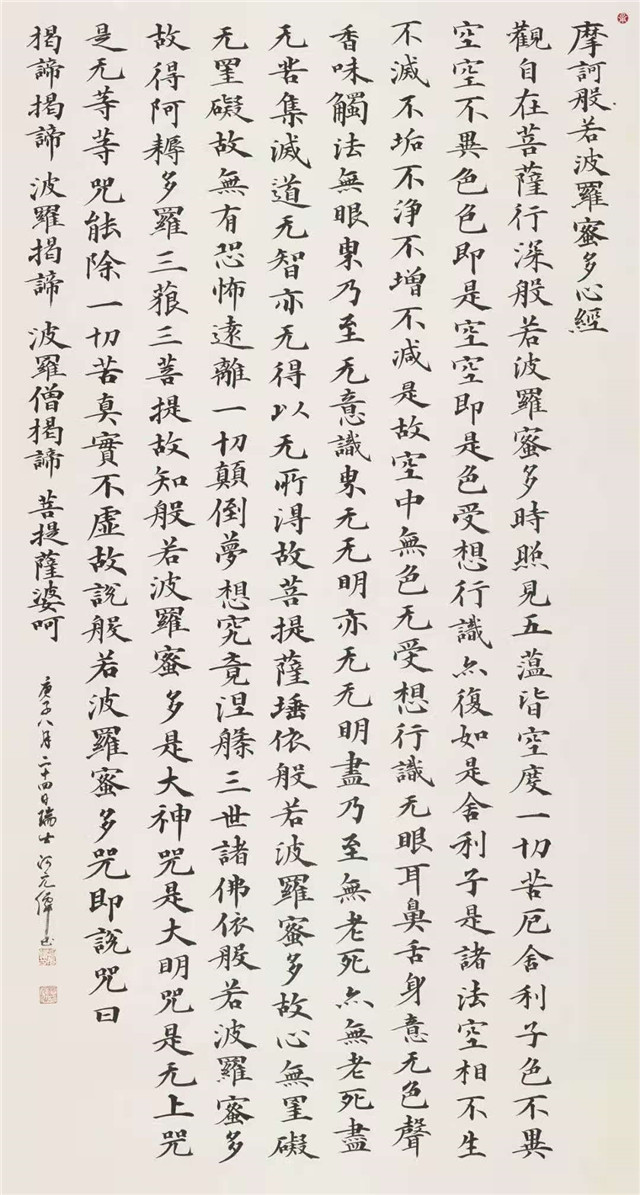 摩訶般若波羅蜜多心經
觀自在菩薩行深般若波羅蜜多時照見五蕰皆空度一切苦厄舍利子色不異
空空不異色色即是空空即是色受想行識亦復如是舍利子是諸法空相不生
不滅不垢不淨不增不減是故空中無色无受想行識无眼耳鼻舌身意无色聲
香味觸法無眼界乃至无意識界无无明亦无无明盡乃至無老死亦無老死盡
无苦集滅道无智亦无得以无所得故菩提薩埵依般若波羅蜜多故心無罣礙
无罣礙故無有恐怖遠離一切顛倒夢想究竟涅槃三世諸佛依般若波羅蜜多
故得阿耨多羅三藐三菩提故知般若波羅蜜多是大神咒是大明咒是无上咒
是无等等咒能除一切苦真實不虛故說般若波羅蜜多咒即說咒曰
揭諦揭諦 波羅揭諦 波羅僧揭諦 菩提薩婆呵
庚子八月二十四日瑞士